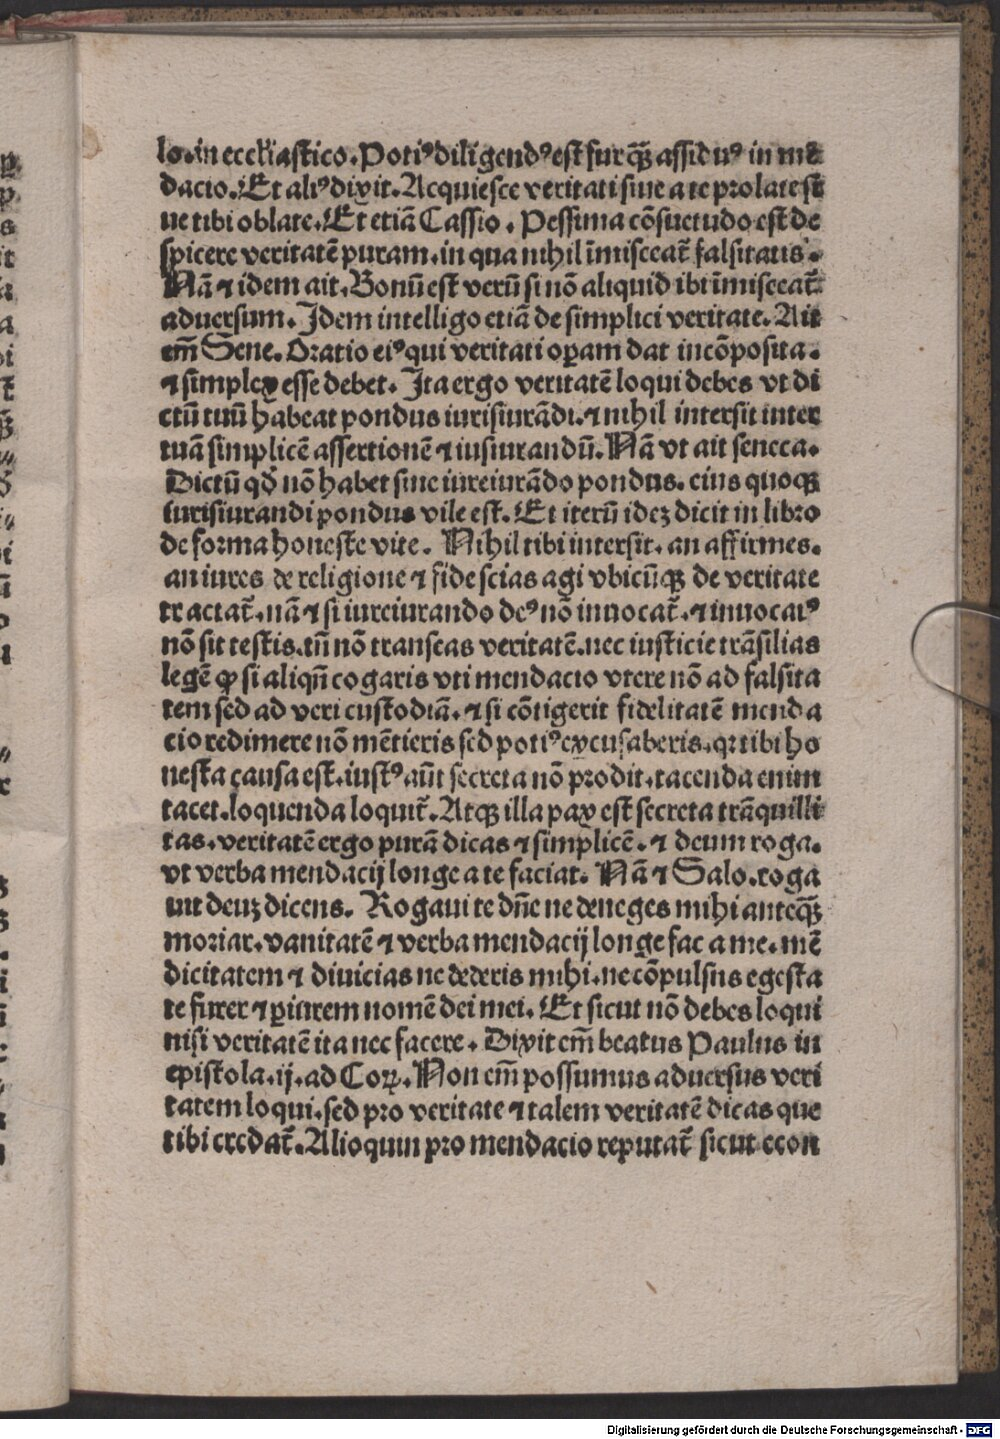 lo.in eccl'iastico.Poti⁹ diligend⁹ est fur qꝫ̄ assidu⁹ in mē
dacio.Et ali⁹ dixit.Acquiesce veritati siue a te prolate si
ue tibi oblate.Et etiā Cassio.Pessima cōsuetudo est de
spicere veritatē puram.in qua nihil īmisceat̄ falsitatis.
Nā ⁊ idem ait.Bonū est verū si nō aliquid ibi īmisceat̄
aduersum.Idem intelligo etiā de simplici veritate.Ait
em̄ Sene.Oratio ei⁹ qui veritati oꝑam dat incōposita.
⁊ simplex esse debet.Ita ergo veritatē loqui debes vt di
ctū tuū habeat pondus iurisiurādi.⁊ nihil intersit inter
tuā simplicē assertionē ⁊ iusiurandū.Nā vt ait seneca.
Dictū qđ nō habet sine iureiurādo pondus.eius quoqꝫ
iurisiurandi pondus vile est.Et iterū ideꝫ dicit in libro
de forma honeste vite.Nihil tibi intersit.an affirmes.
an iures de religione ⁊ fide scias agi vbicūqꝫ de veritate
tractat̄.nā ⁊ si iureiurando de⁹ nō inuocat̄.⁊ inuocat⁹
nō sit testis.tn̄ nō transeas veritatē.nec iusticie trāsilias
legē ꝙ si aliqn̄ cogaris vti mendacio vtere nō ad falsita
tem sed ad veri custodiā.⁊ si cōtigerit fidelitatē menda
cio redimere nō mētieris sed poti⁹ excusaberis.qꝛ tibi ho
nesta causa est.iust⁹ aūt secreta nō prodit.tacenda enim
tacet.loquenda loquit̄.Atqꝫ illa pax est secreta trāquilli
tas.veritatē ergo purā dicas ⁊ simplicē.⁊ deum roga.
vt verba mendacij longe a te faciat.Nā ⁊ Salo.roga
uit deuꝫ dicens.Rogaui te dn̄e ne deneges mihi anteqꝫ̄
moriar.vanitatē ⁊ verba mendacij longe fac a me.mē
dicitatem ⁊ diuicias ne dederis mihi.ne cōpulsus egesta
te furer ⁊ ꝑiurem nomē dei mei.Et sicut nō debes loqui
nisi veritatē ita nec facere.Dixit em̄ beatus Paulus in
epistola.ij.ad Coꝝ.Non em̄ possumus aduersus veri
tatem loqui.sed pro veritate ⁊ talem veritatē dicas que
tibi credat̄.Alioquin pro mendacio reputat̄ sicut econ
Digitalisierung gefördert durch die Deutsche Forschungsgemeinschaft - DFG